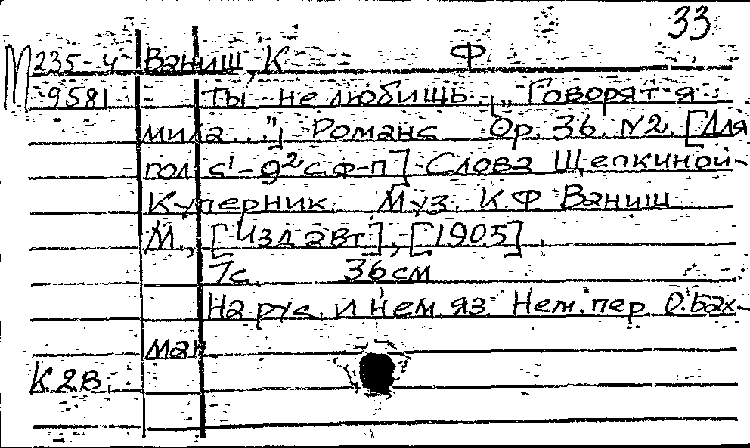 33
М 235-4 Ваниш, К Ф
9581 Ты не любишь. „Говорят я
мила..."; Романс Ор. 36. N2. [Для
гол. c¹-g² с ф-п] Слова Щепкиной-
Куперник Муз. К Ф Ваниш
М., [Изд авт], [1905].
7с. 36см
На рус и нем яз. Нем. пер. О. Бах-
ман
К 2В.